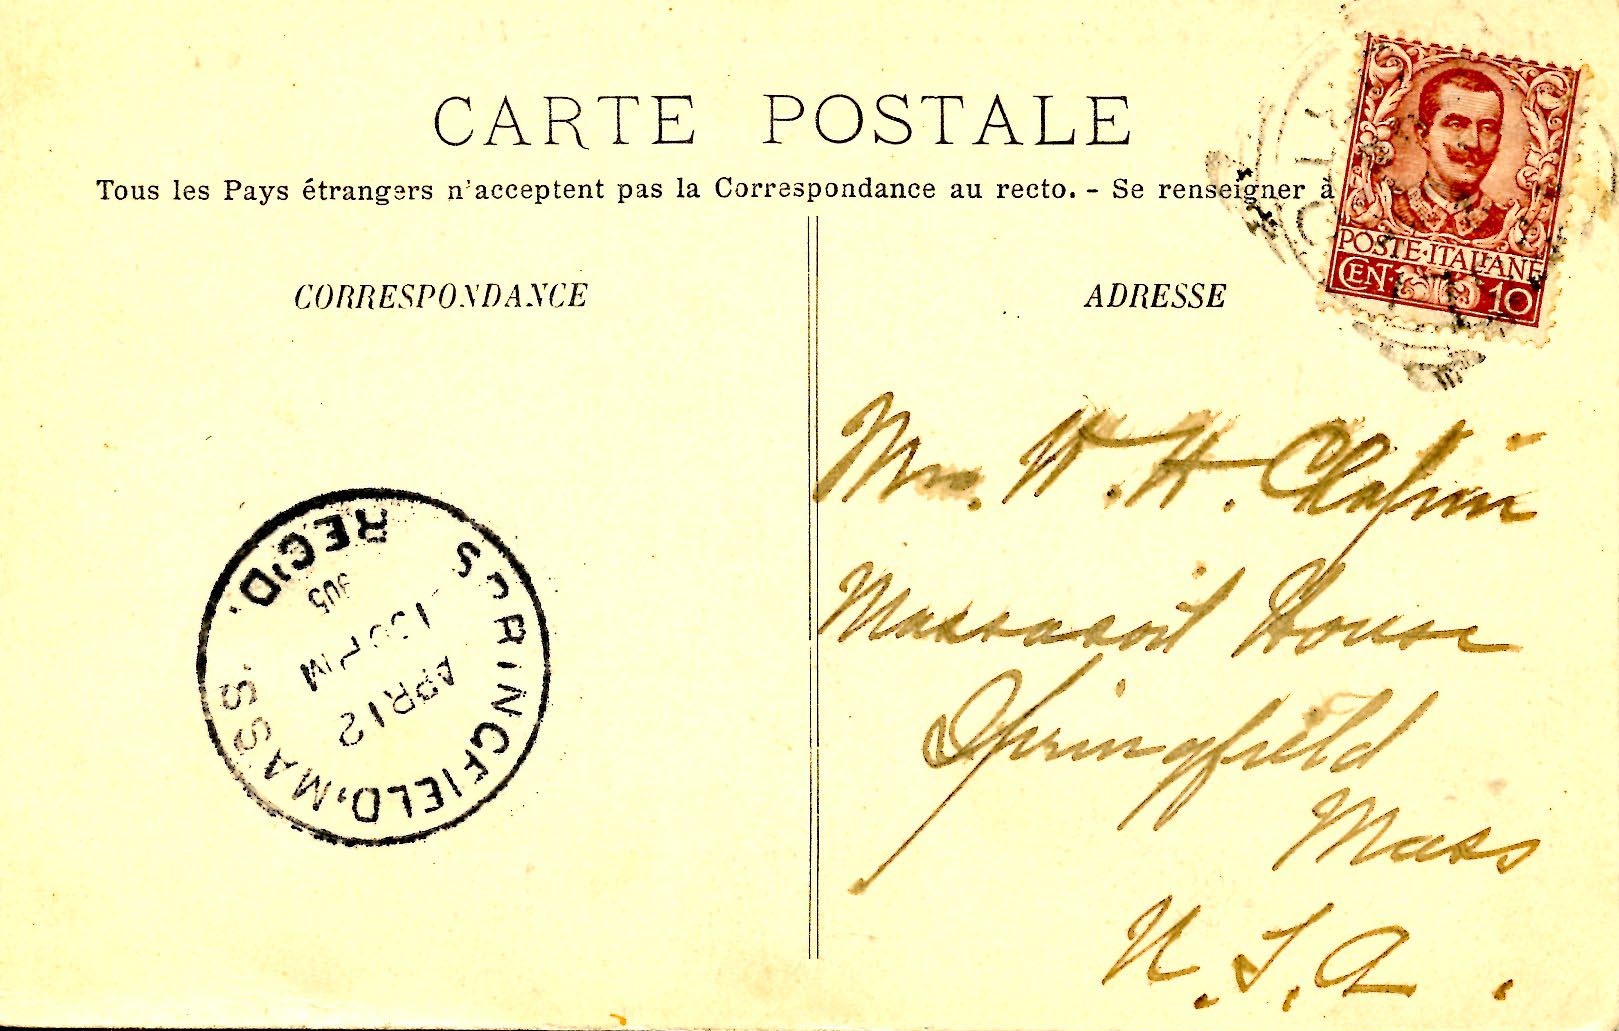 CARTE POSTALE
Tous les Pays étrangers n'acceptent pas la Correspondance au recto. - Se renseigner à
POSTE·ITALIANE
CEN. 10
CORRESPONDANCE
ADRESSE
W. H. Chapin
Massasoit House
Springfield
Mass
U.S.A.
SPRINGFIELD, MASS.
REC'D.
APR 12
130 PM
905